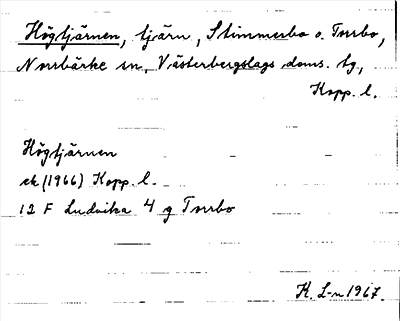 Högtjärnen, tjärn, Stimmerbo o. Torrbo,
Norrbärke sn, Västerbergslags doms. tg,
Kopp. l.
Högtjärnen
ek (1966) Kopp. l.
12 F Ludvika 4 g Torrbo
K. L-n 1967.